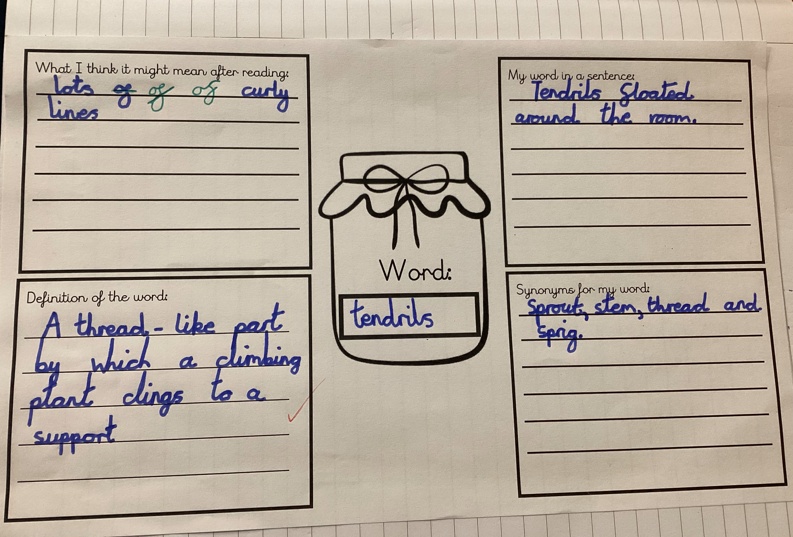 What I think it might mean after reading:
lots of of of curly
lines
My word in a sentence:
Tendrils floated
around the room.
Word:
tendrils
Definition of the word:
A thread-like part
by which a climbing
plant clings to a
support
Synonyms for my word:
Sprout, stem, thread and
sprig.